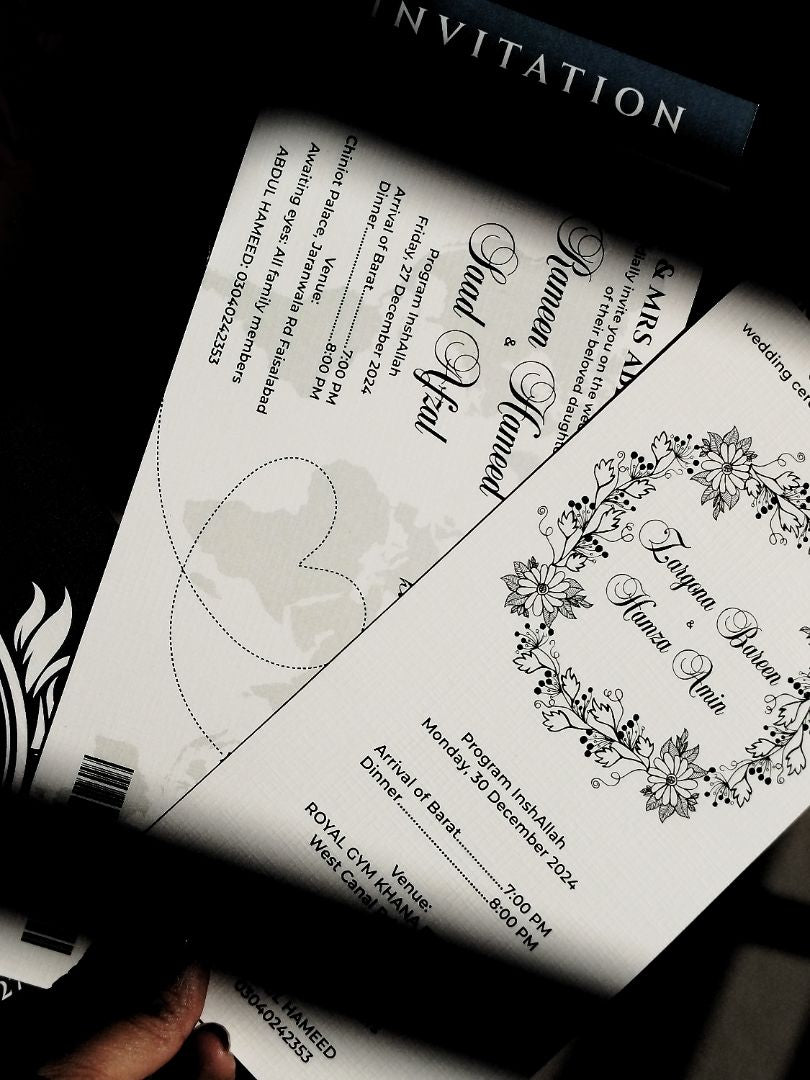 INVITATION
& MRS
invite you on the
of their beloved
Rameen Hameed
&
Saad Afzal
Program InshAllah
Friday, 27 December 2024
Arrival of Barat..............7:00 PM
Dinner..............8:00 PM
Venue:
Chiniot Palace, Jaranwala Rd Faisalabad
Awaiting eyes: All family members
ABDUL HAMEED: 03040242353
wedding
Zargona Bareen
&
Hamza Amin
Program InshAllah
Monday, 30 December 2024
Arrival of Barat..............7:00 PM
Dinner..............8:00 PM
Venue:
ROYAL GYM KHANA
West Canal
HAMEED
03040242353